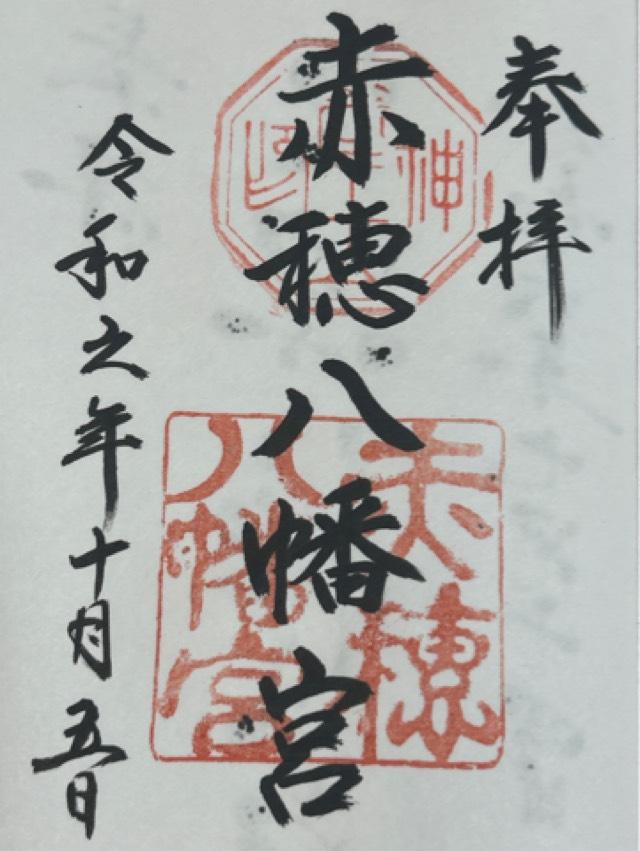 奉拝
赤穂八幡宮
令和元年十月五日
赤穂
八幡宮